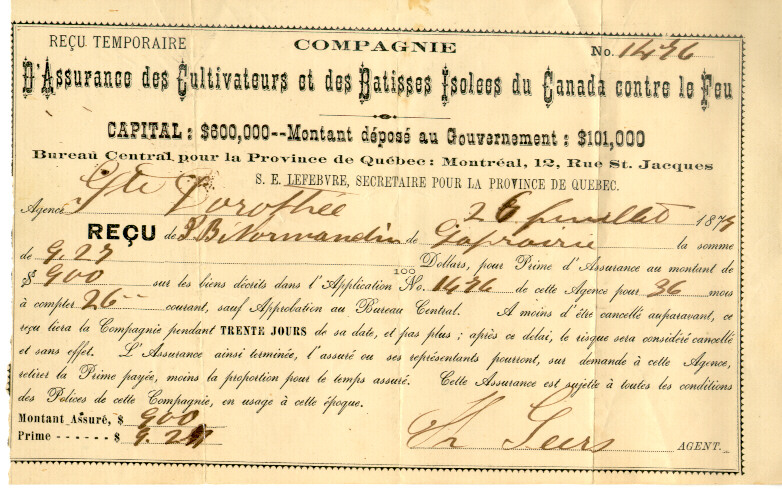 REÇU TEMPORAIRE
COMPAGNIE
No. 1476
D'Assurance des Cultivateurs et des Batisses Isolees du Canada contre le Feu
CAPITAL: $600,000--Montant déposé au Gouvernement: $101,000
Bureau Central pour la Province de Québec: Montréal, 12, Rue St. Jacques
S. E. LEFEBVRE, SECRETAIRE POUR LA PROVINCE DE QUEBEC.
Agence Ste Dorothée 26 juillet 187
REÇU de J. B. Normandin de Laprairie la somme
de 9.27 100 Dollars, pour Prime d'Assurance au montant de
$ 900 sur les biens décrits dans l'Application No. 1476 de cette Agence pour 36 mois
à compter 26 courant, sauf Approbation au Bureau Central. A moins d'être cancellé auparavant, ce
reçu liera la Compagnie pendant TRENTE JOURS de sa date, et pas plus; après ce delai, le risque sera considéré cancellé
et sans effet. L'Assurance ainsi terminée, l'assuré ou ses représentants pourront, sur demande à cette Agence,
retirer la Prime payée, moins la proportion pour le temps assuré. Cette Assurance est sujette à toutes les conditions
des Polices de cette Compagnie, en usage à cette époque.
Montant Assuré, $ 900
Prime ------ $ 9.27
AGENT.